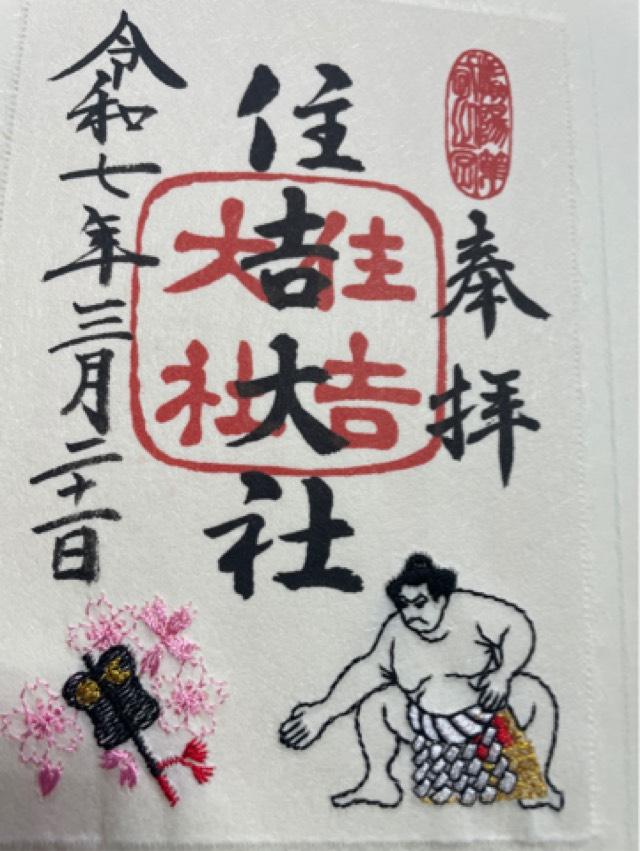 奉拝
住吉大社
住吉
大社
令和七年三月二十一日